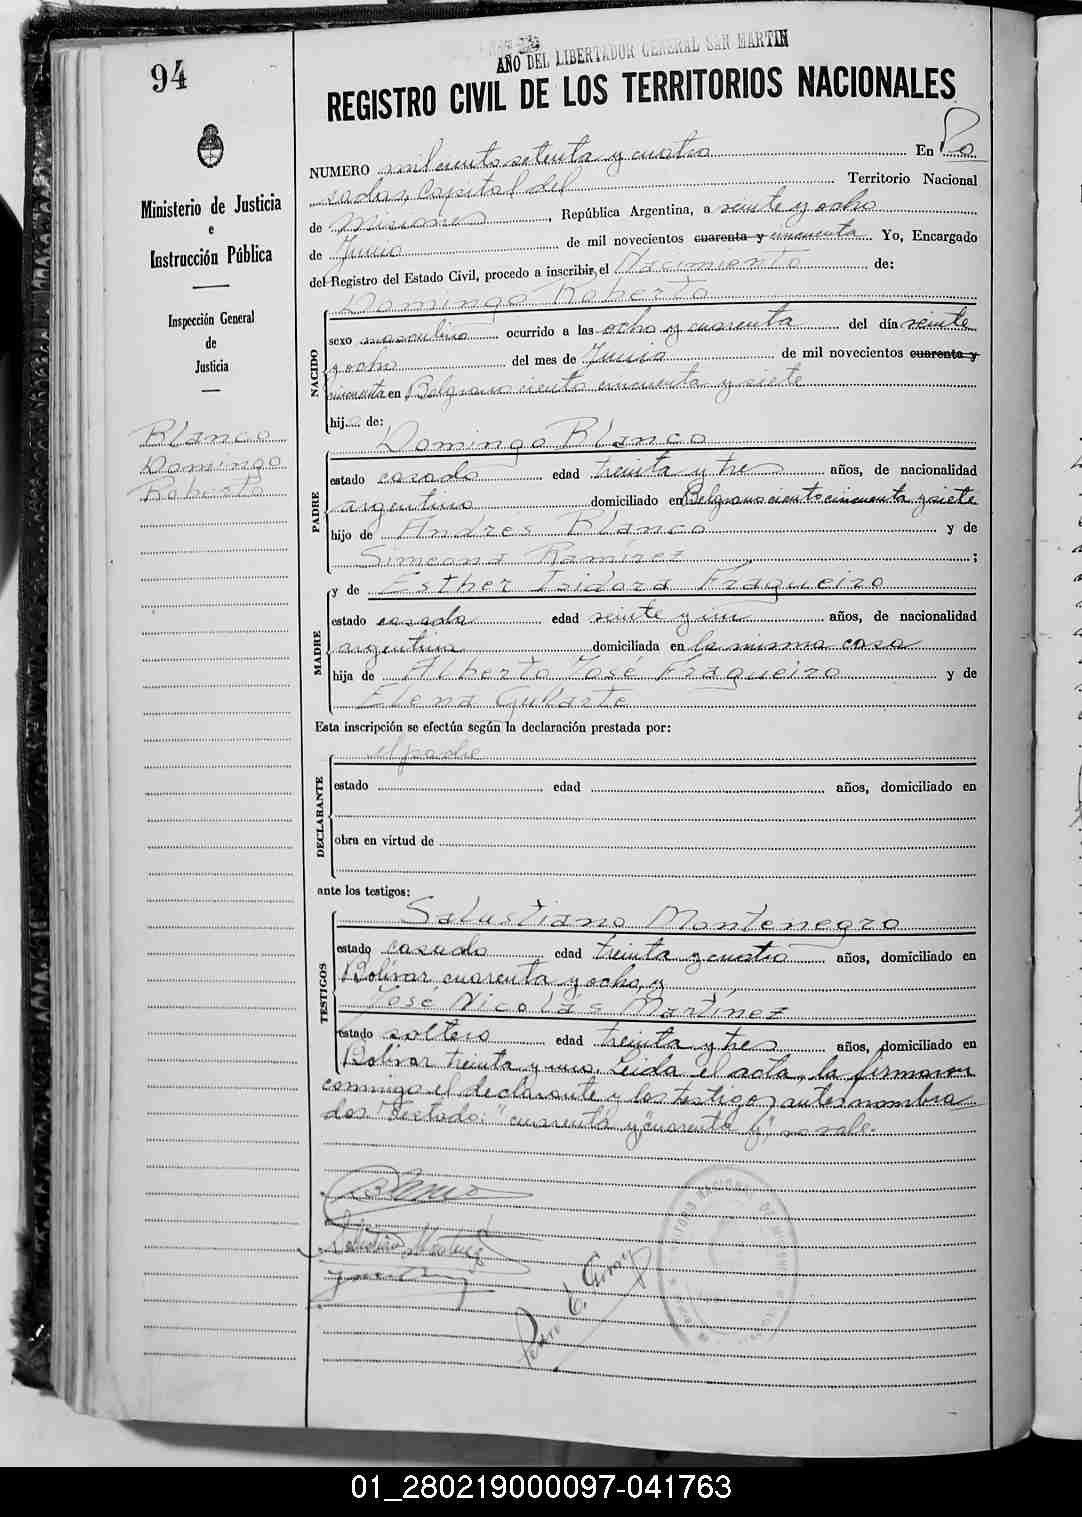 94
AÑO DEL LIBERTADOR GENERAL SAN MARTIN
REGISTRO CIVIL DE LOS TERRITORIOS NACIONALES
Ministerio de Justicia
e
Instrucción Pública
Inspección General
de
Justicia
Blanco
Domingo
Roberto
NUMERO mil ciento setenta y cuatro En Po
sadas, Capital del Territorio Nacional
de Misiones, República Argentina, a veinte y ocho
de Junio de mil novecientos cuarenta y cincuenta Yo, Encargado
del Registro del Estado Civil, procedo a inscribir el Nacimiento de:
Domingo Roberto
NACIDO
sexo masculino ocurrido a las ocho y cuarenta del día veinte
y ocho del mes de Junio de mil novecientos cuarenta y
cincuenta en Belgrano ciento cincuenta y siete
hijo de:
Domingo Blanco
PADRE
estado casado edad treinta y tres años, de nacionalidad
argentino domiciliado en Belgrano ciento cincuenta y siete
hijo de Andres Blanco y de
Simeona Ramírez ;
y de Esther Isidora Fragueiro
MADRE
estado casada edad veinte y un años, de nacionalidad
argentina domiciliada en la misma casa
hija de Alberto José Fragueiro y de
Elena Guharte
Esta inscripción se efectúa según la declaración prestada por:
el padre
DECLARANTE
estado edad años, domiciliado en
obra en virtud de
ante los testigos:
Salustiano Montenegro
TESTIGOS
estado casado edad treinta y cuatro años, domiciliado en
Bolívar cuarenta y ocho, y
José Nicolás Martínez
estado soltero edad treinta y tres años, domiciliado en
Bolívar treinta y uno. Leida el acta, la firmaron
conmigo el declarante y los testigos antes nombra
dos "Testado: "cuarenta y", "cuarenta y", no vale.
Blanco
01_280219000097-041763